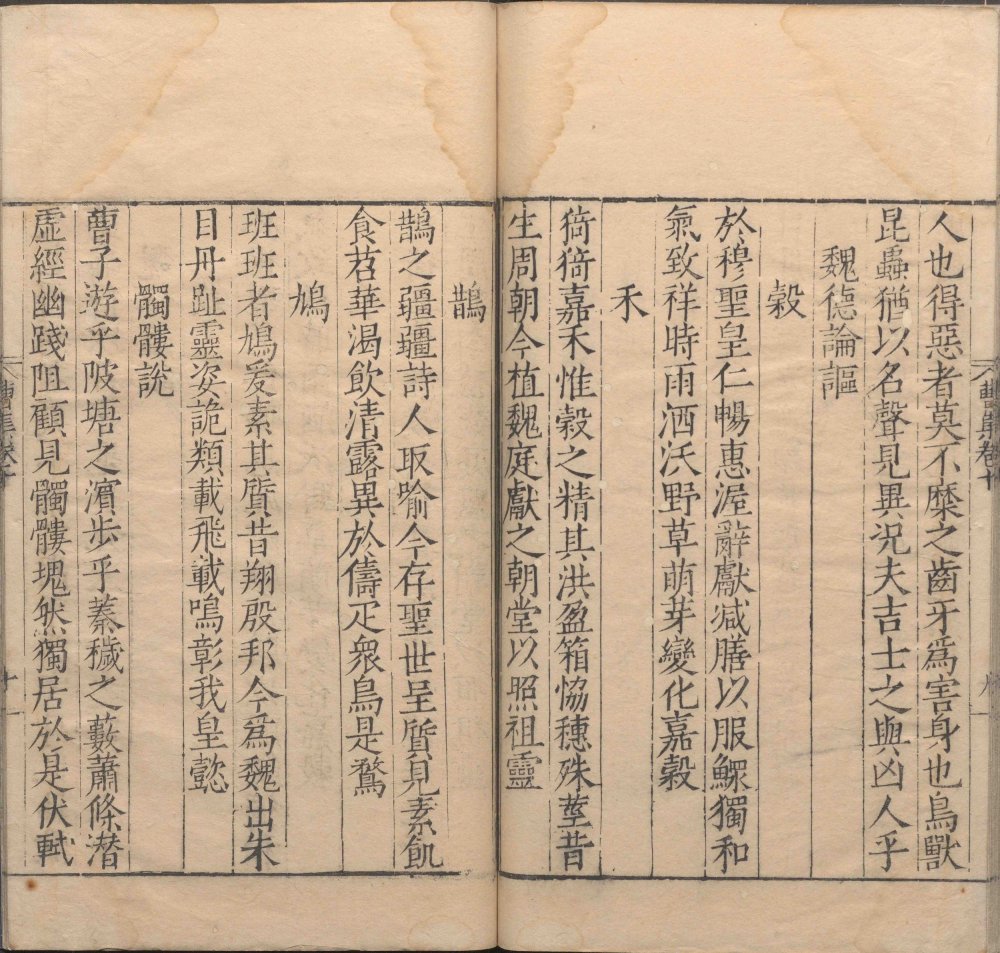 人也得惡者莫不糜之齒牙爲害身也鳥獸
昆蟲猶以名聲見異況夫吉士之與凶人乎
魏德論謳
穀
於穆聖皇仁暢惠渥辭獻减膳以服鰥獨和
氣致祥時雨洒沃野草萌芽變化嘉穀
禾
猗猗嘉禾惟穀之精其洪盈箱協穗殊莖昔
生周朝今植魏庭獻之朝堂以照祖靈
鵲
鵲之疆疆詩人取喻今存聖世呈質見素飢
食苕華渴飲清露異於儔疋衆鳥是鶩
鳩
班班者鳩爰素其質昔翔殷邦今爲魏出朱
目丹趾靈姿詭類載飛載鳴彰我皇懿
髑髏說
曹子遊乎陂塘之濱步乎蓁穢之藪蕭條潛
虛經幽踐阻顧見髑髏塊然獨居於是伏軾